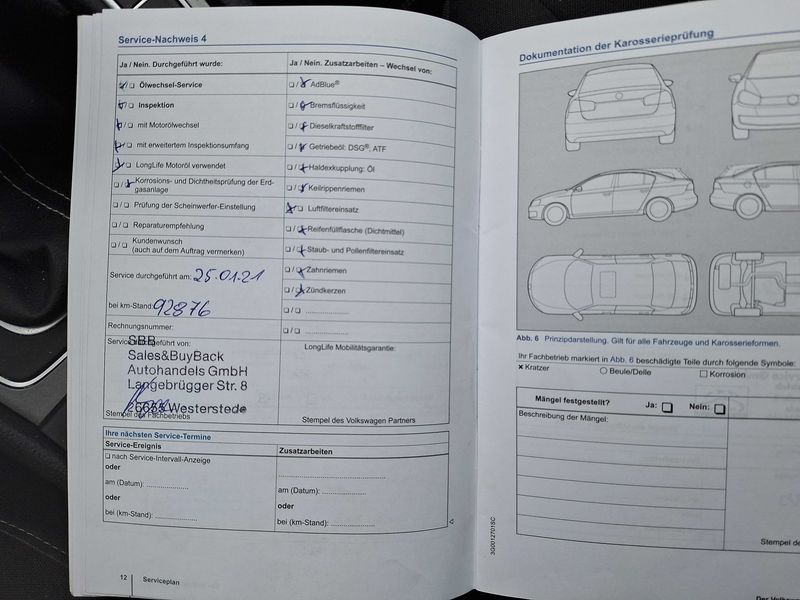 Service-Nachweis 4
Ja / Nein. Durchgeführt wurde:
Ja / Nein. Zusatzarbeiten – Wechsel von:
Ölwechsel-Service
AdBlue®
Inspektion
Bremsflüssigkeit
mit Motorölwechsel
Dieselkraftstofffilter
mit erweitertem Inspektionsumfang
Getriebeöl: DSG®, ATF
LongLife Motoröl verwendet
Haldexkupplung: Öl
Korrosions- und Dichtheitsprüfung der Erd-
gasanlage
Keilrippenriemen
Prüfung der Scheinwerfer-Einstellung
Luftfiltereinsatz
Reparaturempfehlung
Reifenfüllflasche (Dichtmittel)
Kundenwunsch
(auch auf dem Auftrag vermerken)
Staub- und Pollenfiltereinsatz
Service durchgeführt am: 25.01.21
Zahnriemen
Zündkerzen
bei km-Stand: 92876
Rechnungsnummer:
Service durchgeführt von:
LongLife Mobilitätsgarantie:
SBB
Sales&BuyBack
Autohandels GmbH
Langebrügger Str. 8
26655 Westerstede
Stempel des Fachbetriebs
Stempel des Volkswagen Partners
Ihre nächsten Service-Termine
Service-Ereignis
Zusatzarbeiten
nach Service-Intervall-Anzeige
oder
am (Datum):
am (Datum):
oder
oder
bei (km-Stand):
bei (km-Stand):
12 Serviceplan
Dokumentation der Karosserieprüfung
Abb. 6 Prinzipdarstellung. Gilt für alle Fahrzeuge und Karosserieformen.
Ihr Fachbetrieb markiert in Abb. 6 beschädigte Teile durch folgende Symbole:
× Kratzer
Beule/Delle
Korrosion
Mängel festgestellt? Ja: Nein:
Beschreibung der Mängel:
3G0012701SC
Stempel de
Der Volksw